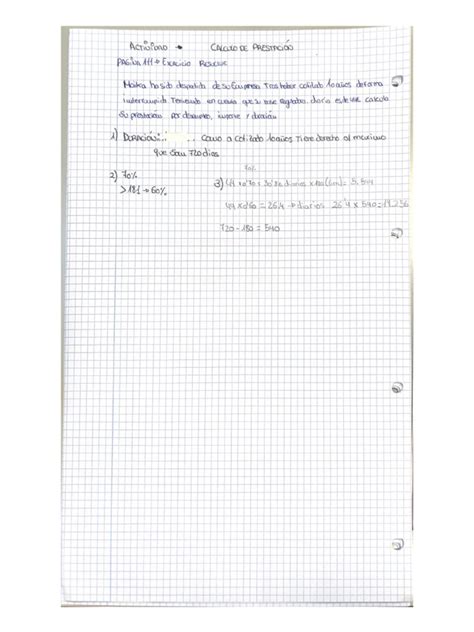 Actividad → CALCULO DE PRESTACIÓN
PAGINA 111 → Ejercicio Resuelve
ha sido despedida de su Empresa Tras haber cotizado 10 años de forma
interrumpida Teniendo en cuenta que su base diaria es calcula
Su prestación por desempleo, y duración
1) DURACIÓN: Como a cotizado 10 años Tiene derecho al maximo
que Son 720 dias
70%
2) 70% 3) 44 x 0'70 = 30'8 diarios x 180 (6m) = 5.544
>181 → 60% 44 x 0'60 = 26,4 → diarios 26'4 x 540 = 14.256
720 - 180 = 540